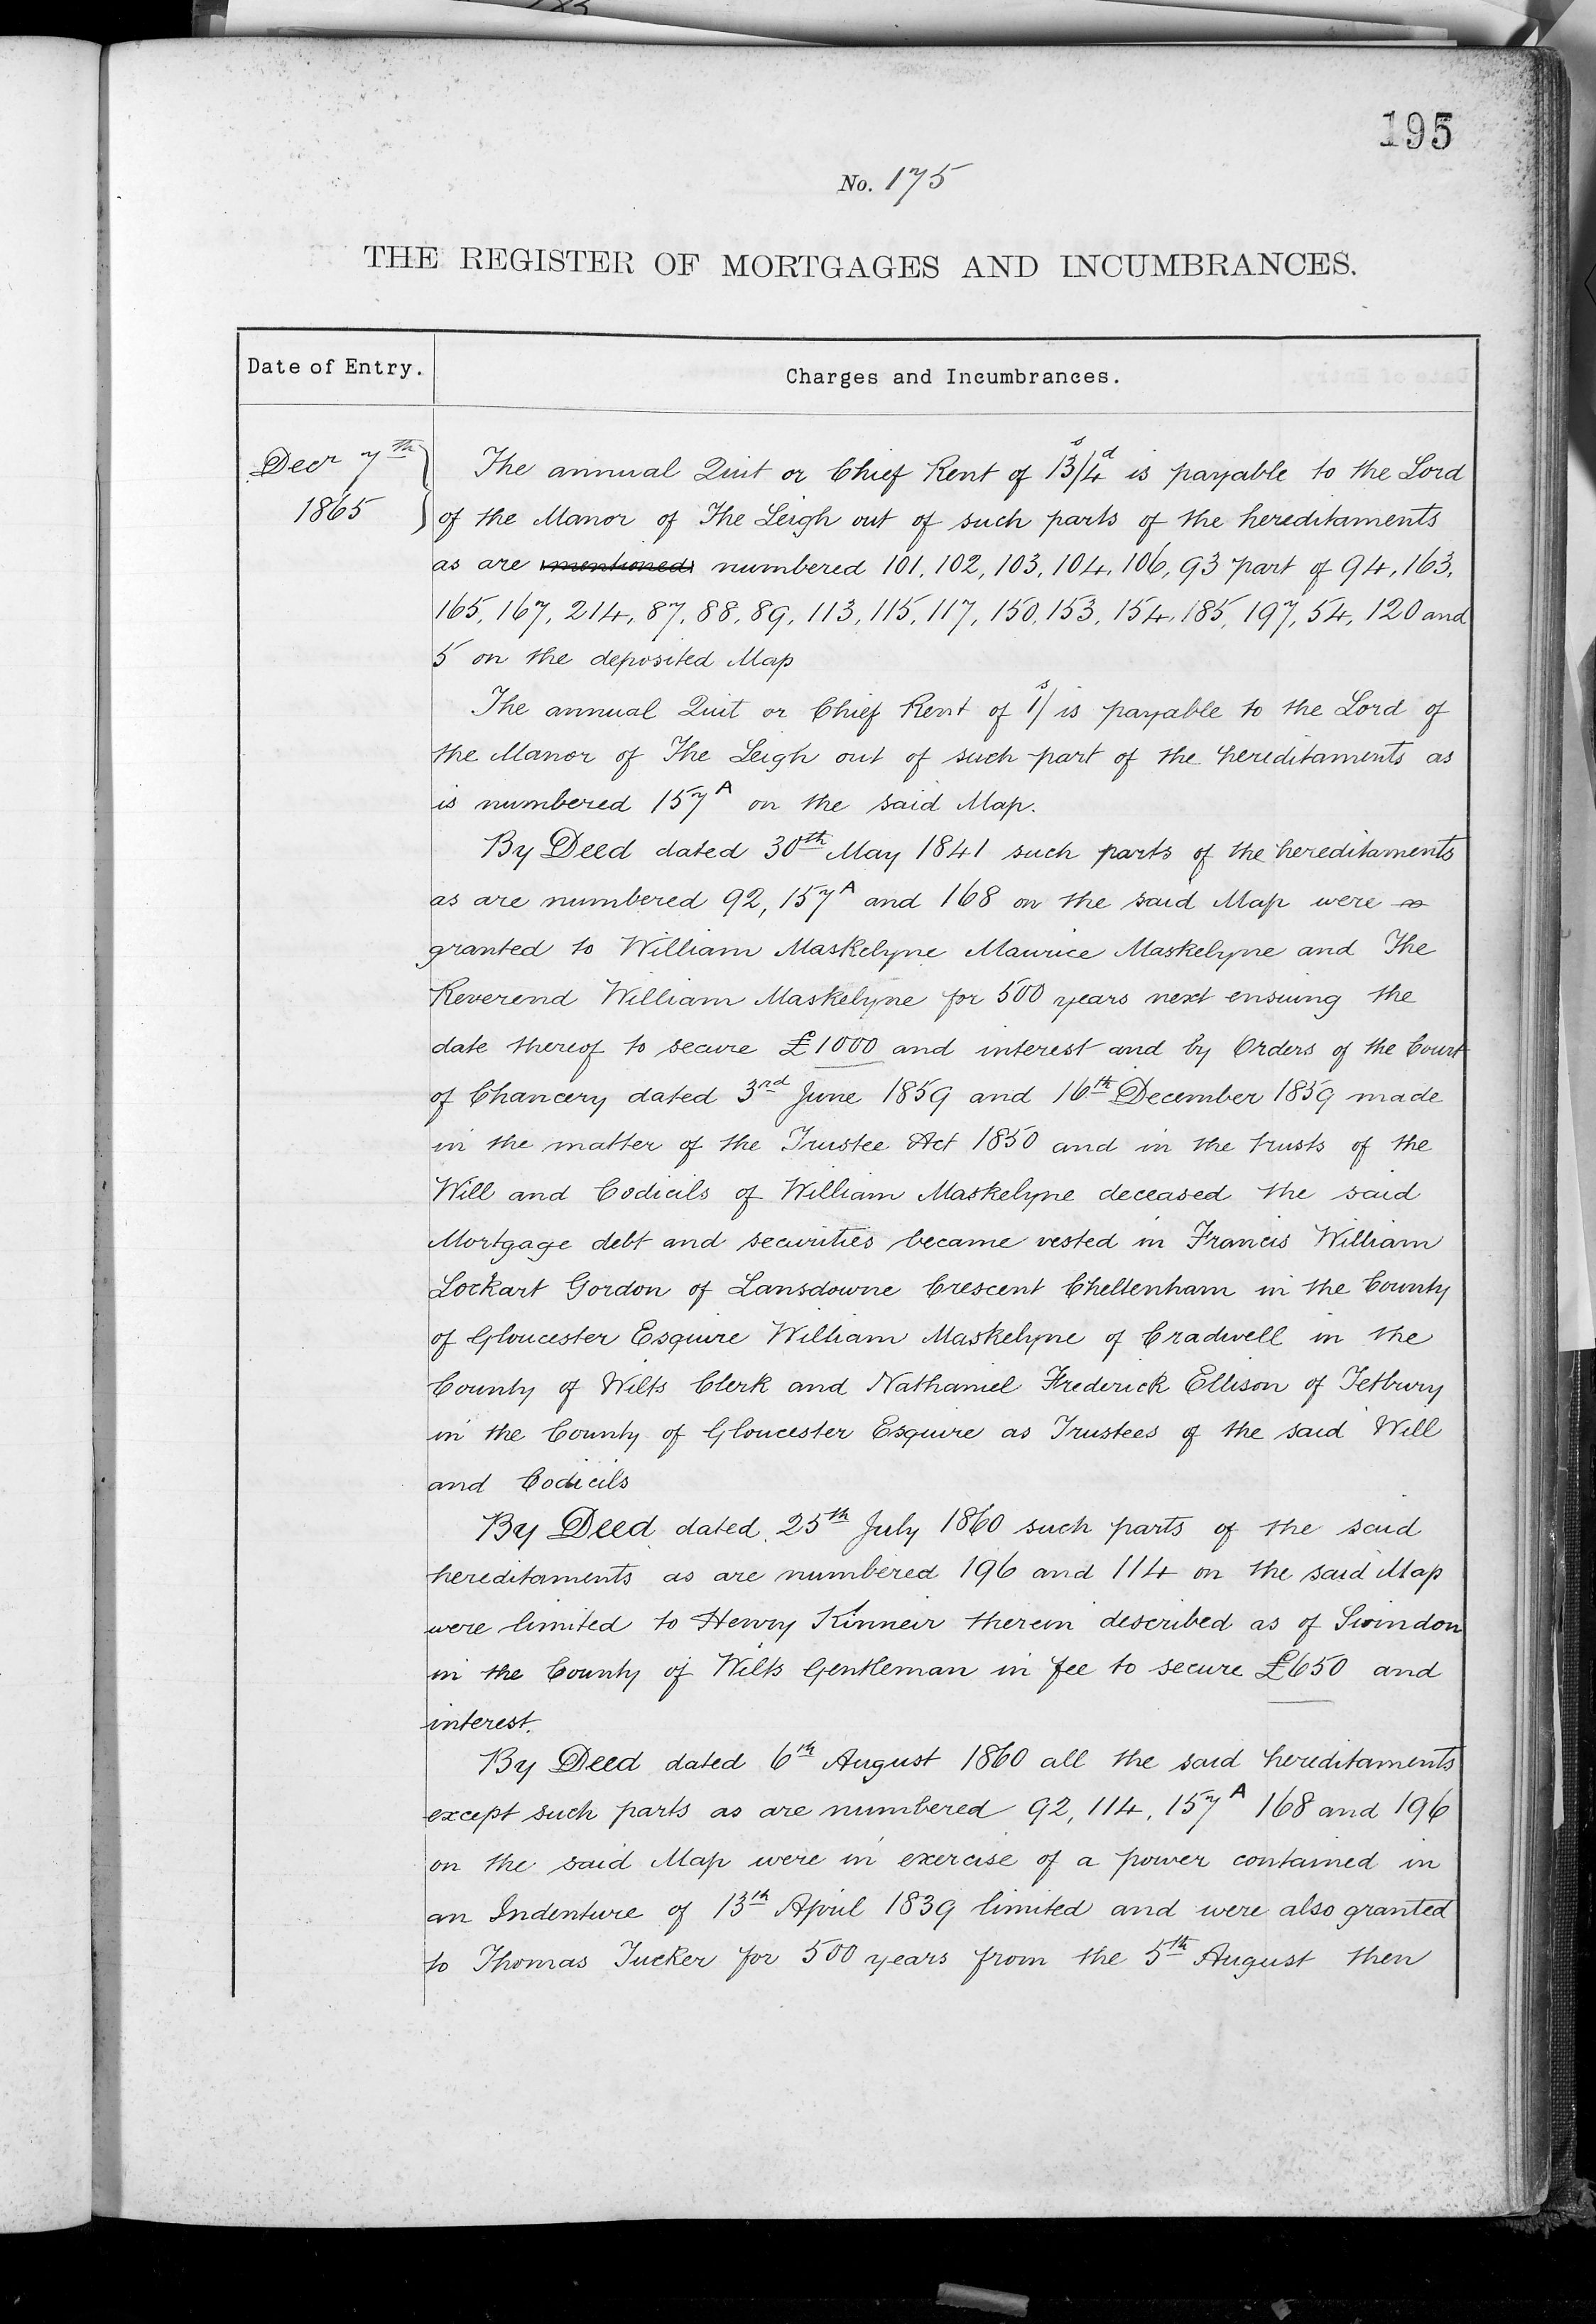 195
No. 175
THE REGISTER OF MORTGAGES AND INCUMBRANCES.
Date of Entry.
Charges and Incumbrances.
Decr 7th
1865
The annual Quit or Chief Rent of 13s/4d is payable to the Lord
of the Manor of The Leigh out of such parts of the hereditaments
as are mentioned numbered 101, 102, 103, 104, 106, 93 part of 94, 163,
165, 167, 214, 87, 88, 89, 113, 115, 117, 150, 153, 154, 185, 197, 54, 120 and
5 on the deposited Map
The annual Quit or Chief Rent of 1s/ is payable to the Lord of
the Manor of The Leigh out of such part of the hereditaments as
is numbered 157A on the said Map.
By Deed dated 30th May 1841 such parts of the hereditaments
as are numbered 92, 157A and 168 on the said Map were
granted to William Maskelyne Maurice Maskelyne and The
Reverend William Maskelyne for 500 years next ensuing the
date thereof to secure £1000 and interest and by Orders of the Court
of Chancery dated 3rd June 1859 and 16th December 1859 made
in the matter of the Trustee Act 1850 and in the trusts of the
Will and Codicils of William Maskelyne deceased the said
Mortgage debt and securities became vested in Francis William
Lockart Gordon of Lansdowne Crescent Cheltenham in the County
of Gloucester Esquire William Maskelyne of Cradwell in the
County of Wilts Clerk and Nathaniel Frederick Ellison of Tetbury
in the County of Gloucester Esquire as Trustees of the said Will
and Codicils
By Deed dated 25th July 1860 such parts of the said
hereditaments as are numbered 196 and 114 on the said Map
were limited to Henry Kinneir therein described as of Swindon
in the County of Wilts Gentleman in fee to secure £650 and
interest.
By Deed dated 6th August 1860 all the said hereditaments
except such parts as are numbered 92, 114, 157A 168 and 196
on the said Map were in exercise of a power contained in
an Indenture of 13th April 1839 limited and were also granted
to Thomas Tucker for 500 years from the 5th August then